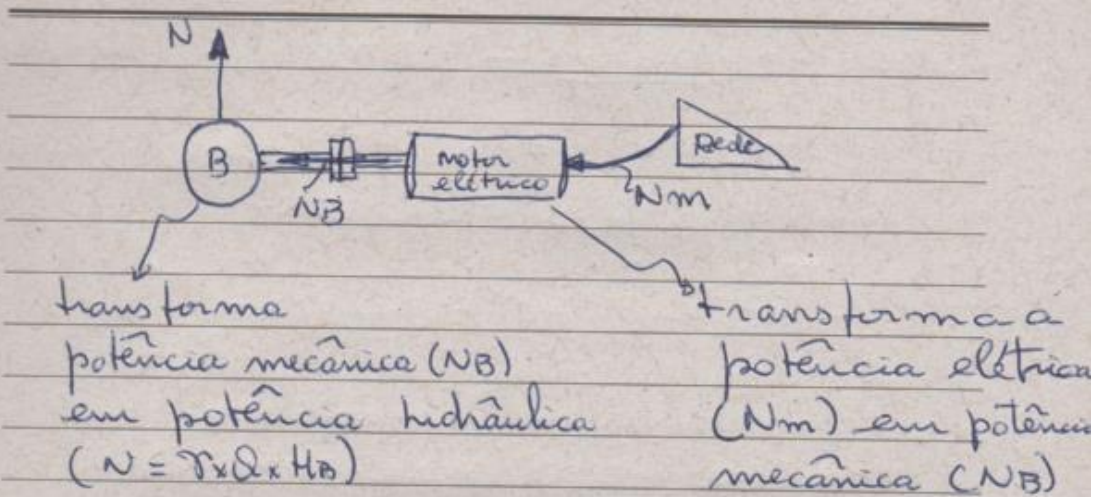 N
B
NB
motor
elétrico
Rede
Nm
transforma
potência mecânica (NB)
em potência hidráulica
(N = γxQxHB)
transforma a
potência elétrica
(Nm) em potência
mecânica (NB)